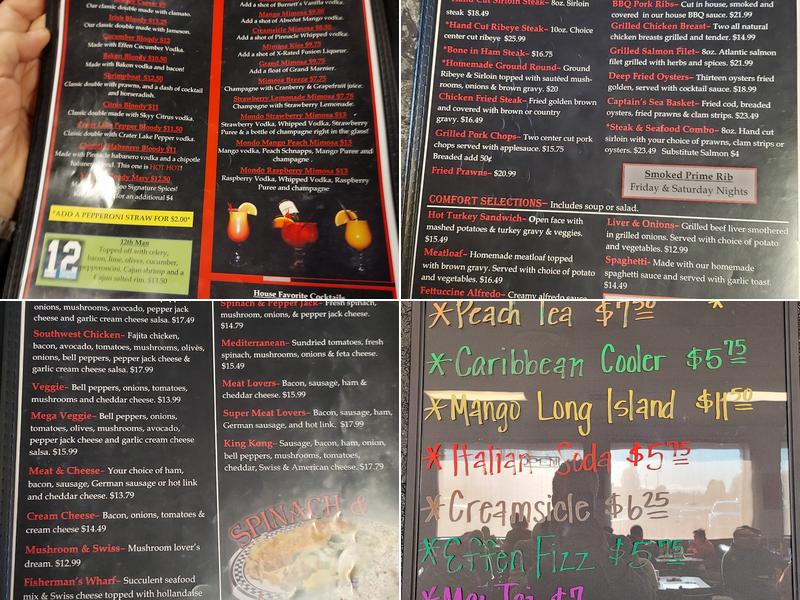 Our classic double with clamato.
Irish Bloody $13.25
Our classic double made with Jameson.
Cucumber Bloody $12
Made with Effen Cucumber Vodka.
Bakon Bloody $10.50
Made with Bakon vodka and bacon!
Shrimpboat $12.50
Classic double with prawns, and a dash of cocktail
and horseradish.
Citrus Bloody $11
Classic double made with Skyy Citrus vodka.
Crater Lake Pepper Bloody $11.50
Classic double with Crater Lake Pepper vodka.
Habanero Bloody $11
Made with Pinnacle habanero vodka and a chipotle
This one is HOT HOT!
Mary $12.50
Signature Spices!
for an additional $4
*ADD A PEPPERONI STRAW FOR $2.00*
12
12th Man
Topped off with celery,
bacon, lime, olives, cucumber,
pepperoncini, Cajun shrimp and a
Cajun salted rim. $13.50
Add a shot of Burnett's Vanilla vodka.
Mango Mimosa
Add a shot of Absolut Mango vodka.
Creamsicle Mimosa
Add a shot of Pinnacle Whipped vodka.
Mimosa Kiss $9.75
Add a shot of X-Rated Fusion Liqueur.
Grand Mimosa $9.75
Add a float of Grand Marnier.
Mimosa Breeze $7.75
Champagne with Cranberry & Grapefruit juice.
Strawberry Lemonade Mimosa $7.75
Champagne with Strawberry Lemonade.
Mondo Strawberry Mimosa $13
Strawberry Vodka, Whipped Vodka, Strawberry
Puree & a bottle of champagne right in the glass!
Mondo Mango Peach Mimosa $13
Mango vodka, Peach Schnapps, Mango Puree and
champagne .
Mondo Raspberry Mimosa $13
Raspberry Vodka, Whipped Vodka, Raspberry
Puree and champagne
House Favorite Cocktails
*Hand Cut Sirloin Steak- 8oz. Sirloin
steak $18.49
*Hand Cut Ribeye Steak- 10oz. Choice
center cut ribeye $25.99
*Bone in Ham Steak- $16.75
*Homemade Ground Round- Ground
Ribeye & Sirloin topped with sautéed mush-
rooms, onions & brown gravy. $20
Chicken Fried Steak- Fried golden brown
and covered with brown or country
gravy. $16.49
Grilled Pork Chops- Two center cut pork
chops served with applesauce. $15.75
Breaded add 50¢
Fried Prawns- $20.99
BBQ Pork Ribs- Cut in house, smoked and
covered in our house BBQ sauce. $21.99
Grilled Chicken Breast- Two all natural
chicken breasts, grilled and tender. $14.99
Grilled Salmon Filet- 8oz. Atlantic salmon
filet grilled with herbs and spices. $21.99
Deep Fried Oysters- Thirteen oysters fried
golden, served with cocktail sauce. $18.99
Captain's Sea Basket- Fried cod, breaded
oysters, fried prawns & clam strips. $23.49
*Steak & Seafood Combo- 8oz. Hand cut
sirloin steak with your choice of prawns, clam strips or
oysters. $23.49 Substitute Salmon $4
Smoked Prime Rib
Friday & Saturday Nights
COMFORT SELECTIONS- Includes soup or salad.
Hot Turkey Sandwich- Open face with
mashed potatoes & turkey gravy & veggies.
$15.49
Meatloaf- Homemade meatloaf topped
with brown gravy. Served with choice of potato
and vegetables. $16.49
Fettuccine Alfredo- Creamy alfredo sauce
Liver & Onions- Grilled beef liver smothered
in grilled onions. Served with choice of potato
and vegetables. $12.99
Spaghetti- Made with our homemade
spaghetti sauce and served with garlic toast.
$14.49
onions, mushrooms, avocado, pepper jack
cheese and garlic cream cheese salsa. $17.49
Southwest Chicken- Fajita chicken,
bacon, avocado, tomatoes, mushrooms, olives,
onions, bell peppers, pepper jack cheese &
garlic cream cheese salsa. $17.99
Veggie- Bell peppers, onions, tomatoes,
mushrooms and cheddar cheese. $13.99
Mega Veggie- Bell peppers, onions,
tomatoes, olives, mushrooms, avocado,
pepper jack cheese and garlic cream cheese
salsa. $15.99
Meat & Cheese- Your choice of ham,
bacon, sausage, German sausage or hot link
and cheddar cheese. $13.79
Cream Cheese- Bacon, onions, tomatoes &
cream cheese $14.49
Mushroom & Swiss- Mushroom lover's
dream. $12.99
Fisherman's Wharf- Succulent seafood
mix & Swiss cheese topped with hollandaise
Spinach & Pepper Jack- Fresh spinach,
mushroom, onions, & pepper jack cheese.
$14.79
Mediterranean- Sundried tomatoes, fresh
spinach, mushrooms, onions & feta cheese.
$15.49
Meat Lovers- Bacon, sausage, ham &
cheddar cheese. $15.99
Super Meat Lovers- Bacon, sausage, ham,
German sausage, and hot link. $17.99
King Kong- Sausage, bacon, ham, onion,
bell peppers, mushrooms, tomatoes,
cheddar, Swiss & American cheese. $17.79
SPINACH &
*Peach Tea $7.50 *
*Caribbean Cooler $5.75
*Mango Long Island $11.50
*Italian Soda $5.75
*Creamsicle $6.25
*Effen Fizz $5.75
*Mai Tai $7